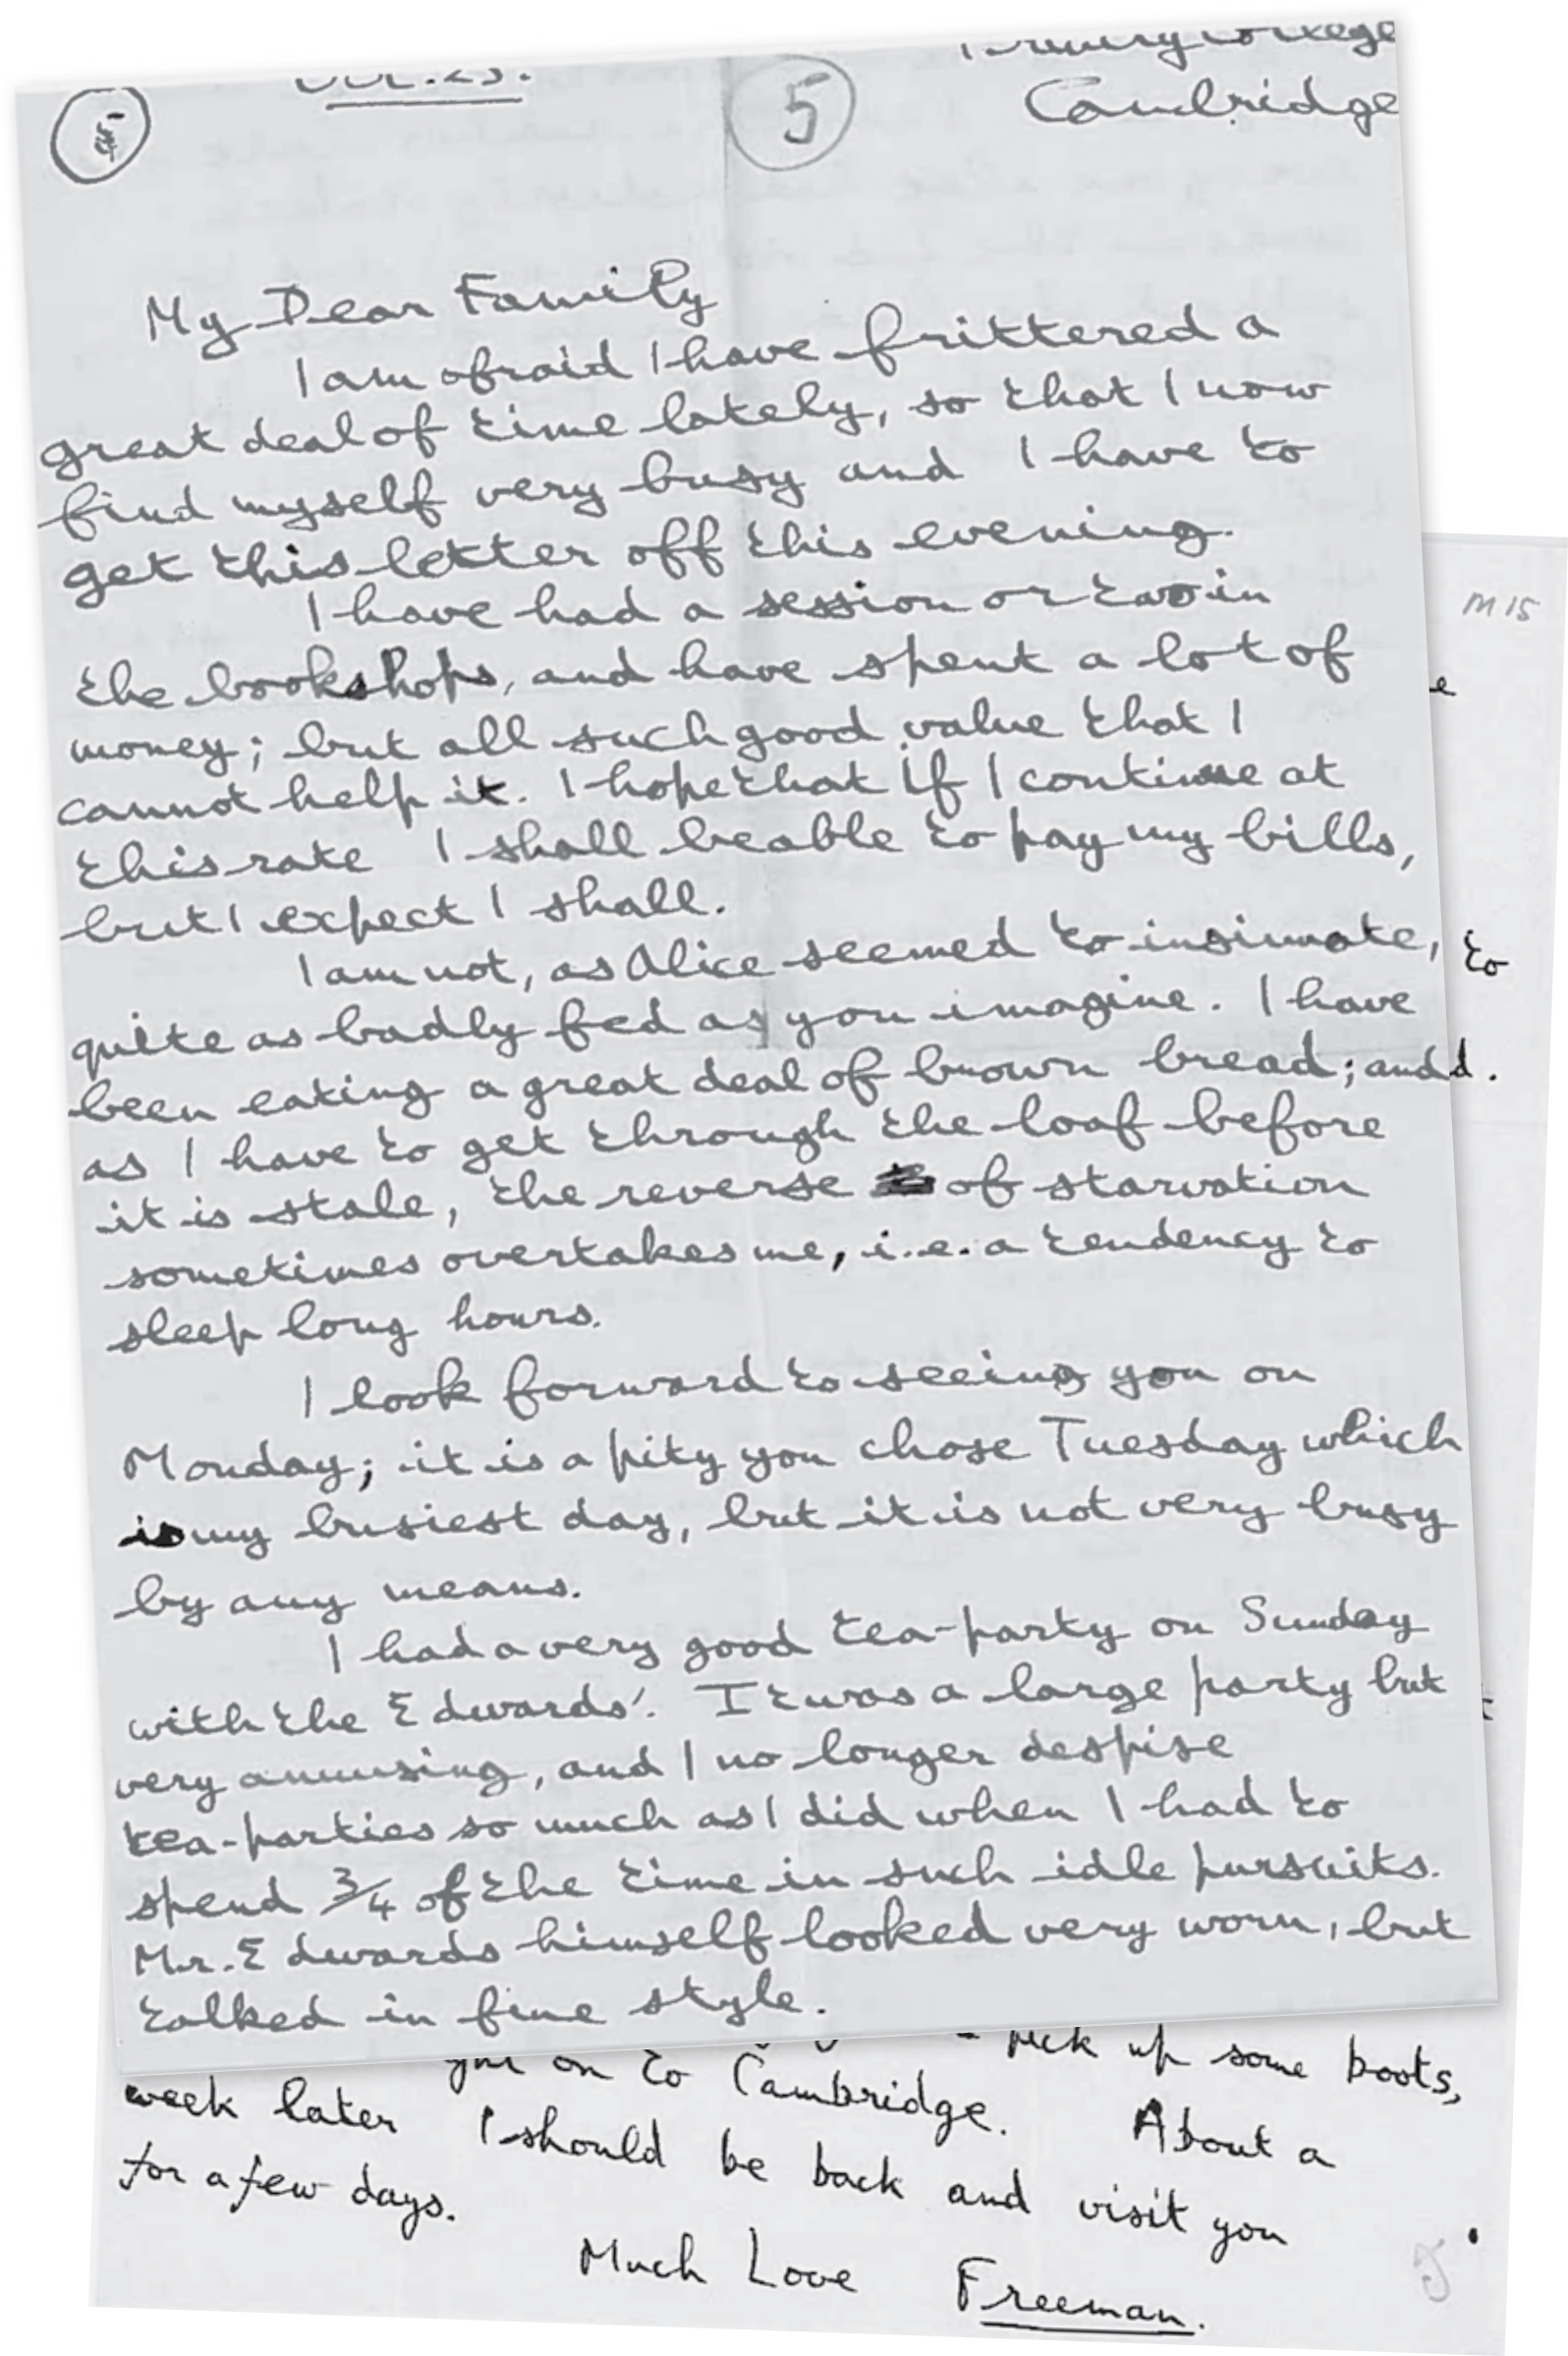 Oct. 23.
5
5
Trinity College
Cambridge
My Dear Family
I am afraid I have frittered a
great deal of time lately, so that I now
find myself very busy and I have to
get this letter off this evening.
I have had a session or two in
the bookshops, and have spent a lot of
money; but all such good value that I
cannot help it. I hope that if I continue at
this rate I shall be able to pay my bills,
but I expect I shall.
I am not, as Alice seemed to insinuate,
quite as badly fed as you imagine. I have
been eating a great deal of brown bread; and
as I have to get through the loaf before
it is stale, the reverse of starvation
sometimes overtakes me, i.e. a tendency to
sleep long hours.
I look forward to seeing you on
Monday; it is a pity you chose Tuesday which
is my busiest day, but it is not very busy
by any means.
I had a very good tea-party on Sunday
with the Edwards'. It was a large party but
very amusing, and I no longer despise
tea-parties so much as I did when I had to
spend 3/4 of the time in such idle pursuits.
Mr. Edwards himself looked very worn, but
talked in fine style.
M15
e
to
d.
t
pick up some boots,
on to Cambridge. About a
week later I should be back and visit you
for a few days.
Much Love Freeman.